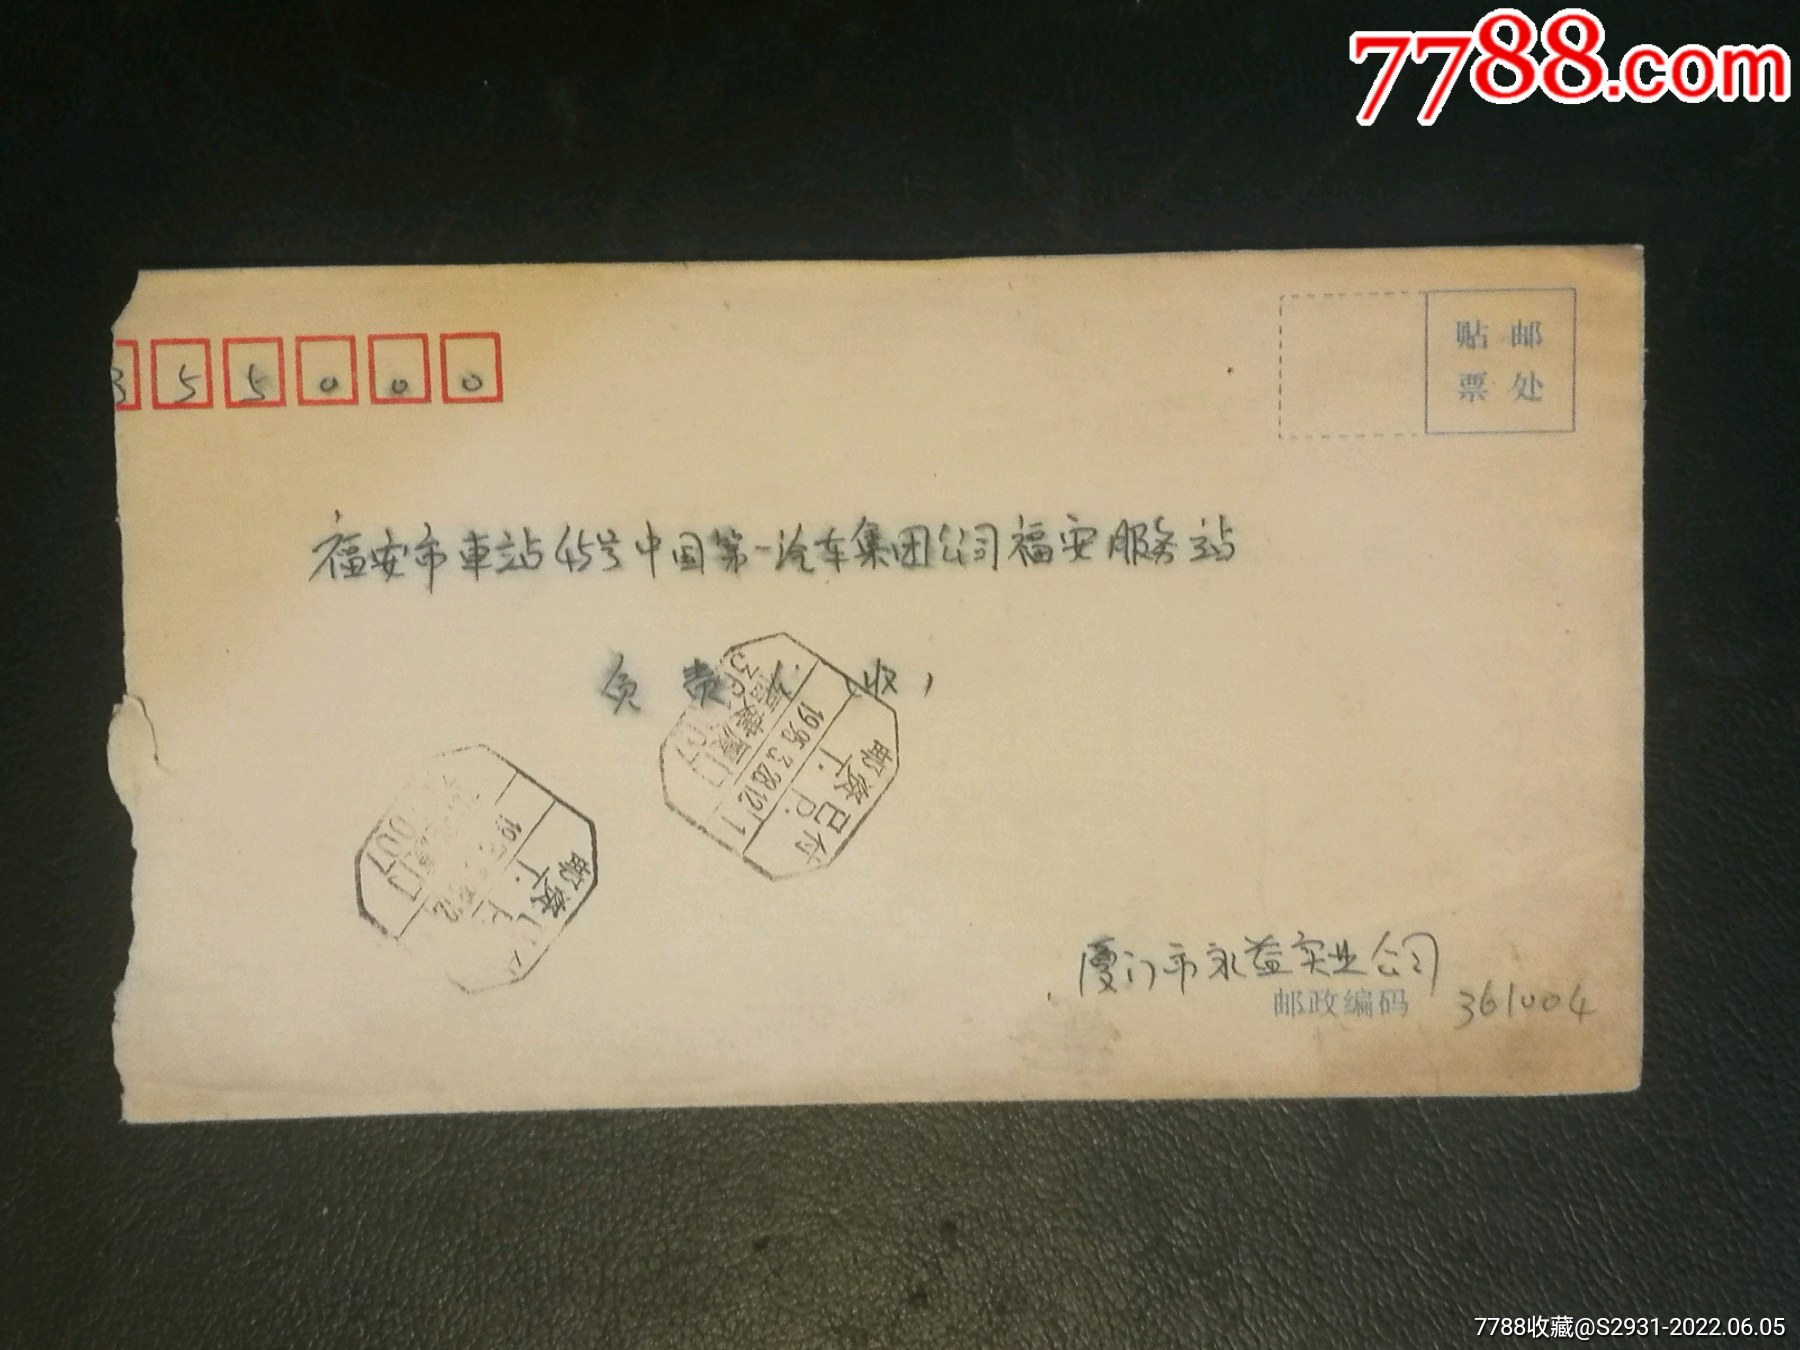 7788.com
贴邮
票处
3 5 5 0 0 0
福安市車站45号中国第一汽车集团公司福安服务站
负责人 收
福建厦门
1995.3.28.12
邮资已付
T. P.
007
邮资
T.
厦门市永益实业公司
邮政编码 361004
7788收藏@S2931-2022.06.05